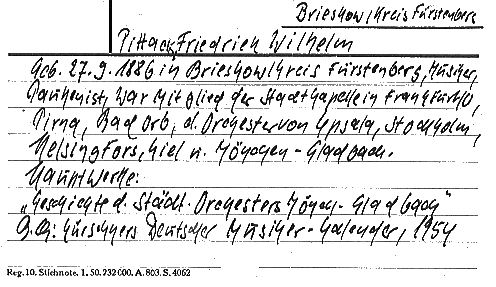 Brieskow/Kreis Fürstenberg
Pittack, Friedrich Wilhelm
Geb. 27.9.1886 in Brieskow/Kreis Fürstenberg, Musiker,
Paukenist, war Mitglied der Stadtkapelle in Frankfurt/O,
Pirna, Bad Orb, d. Orchester von Upsala, Stockholm,
Helsingfors, Kiel u. München-Gladbach.
Hauptwerke:
"Geschichte d. Städt. Orchesters München-Gladbach"
Kürschners Deutscher Musiker-Kalender, 1954
Reg. 10. Stichnote. 1. 50. 232 000. A. 803. S. 4062